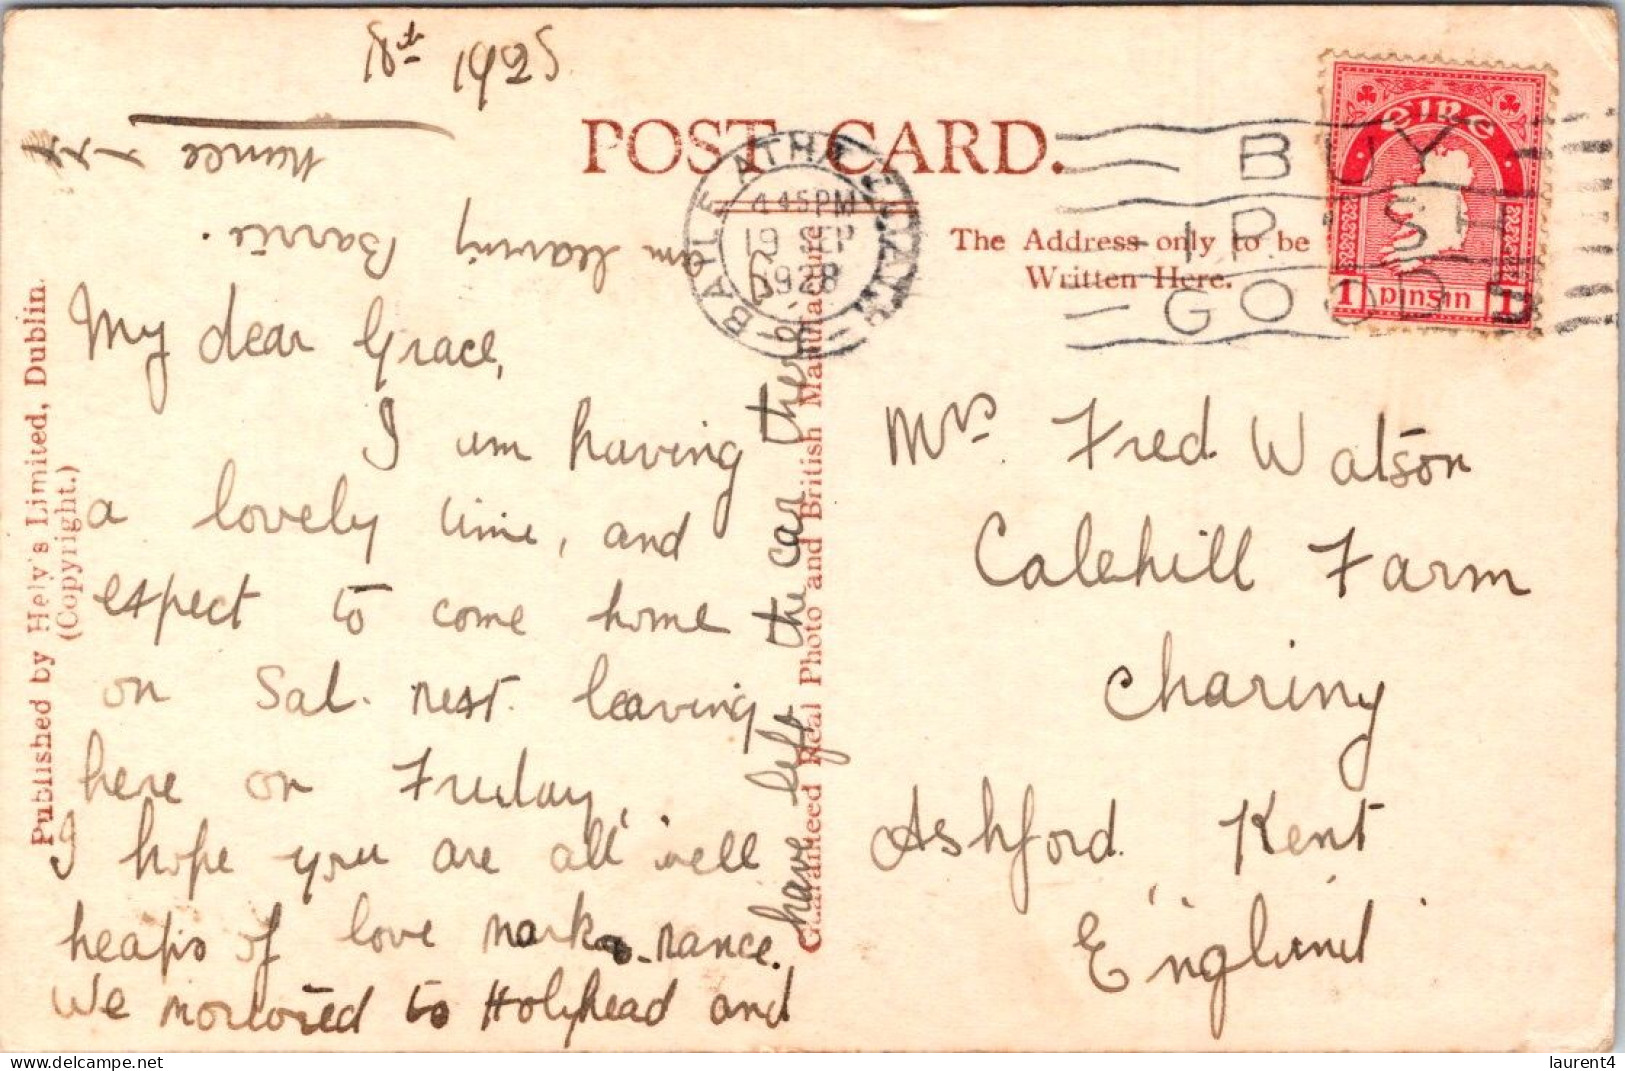 18th 1928
POST CARD.
The Address only to be
Written Here.
BAILE ATHA CLIATH
4 45 PM
19 SEP
1928
BUY
IRISH
GOODS
eire
1 pinsin 1
My dear Grace,
I am having
a lovely time, and
expect to come home
on Sat. next. leaving
here on Friday,
I hope you are all well
heaps of love
nance.
We motored to Holyhead and
have left the car there
am leaving Barrie.
nance xxx
Mrs Fred Watson
Calehill Farm
Charing
Ashford Kent
England
Published by Hely's Limited, Dublin.
(Copyright.)
Guaranteed Real Photo and British Manufacture
laurent4